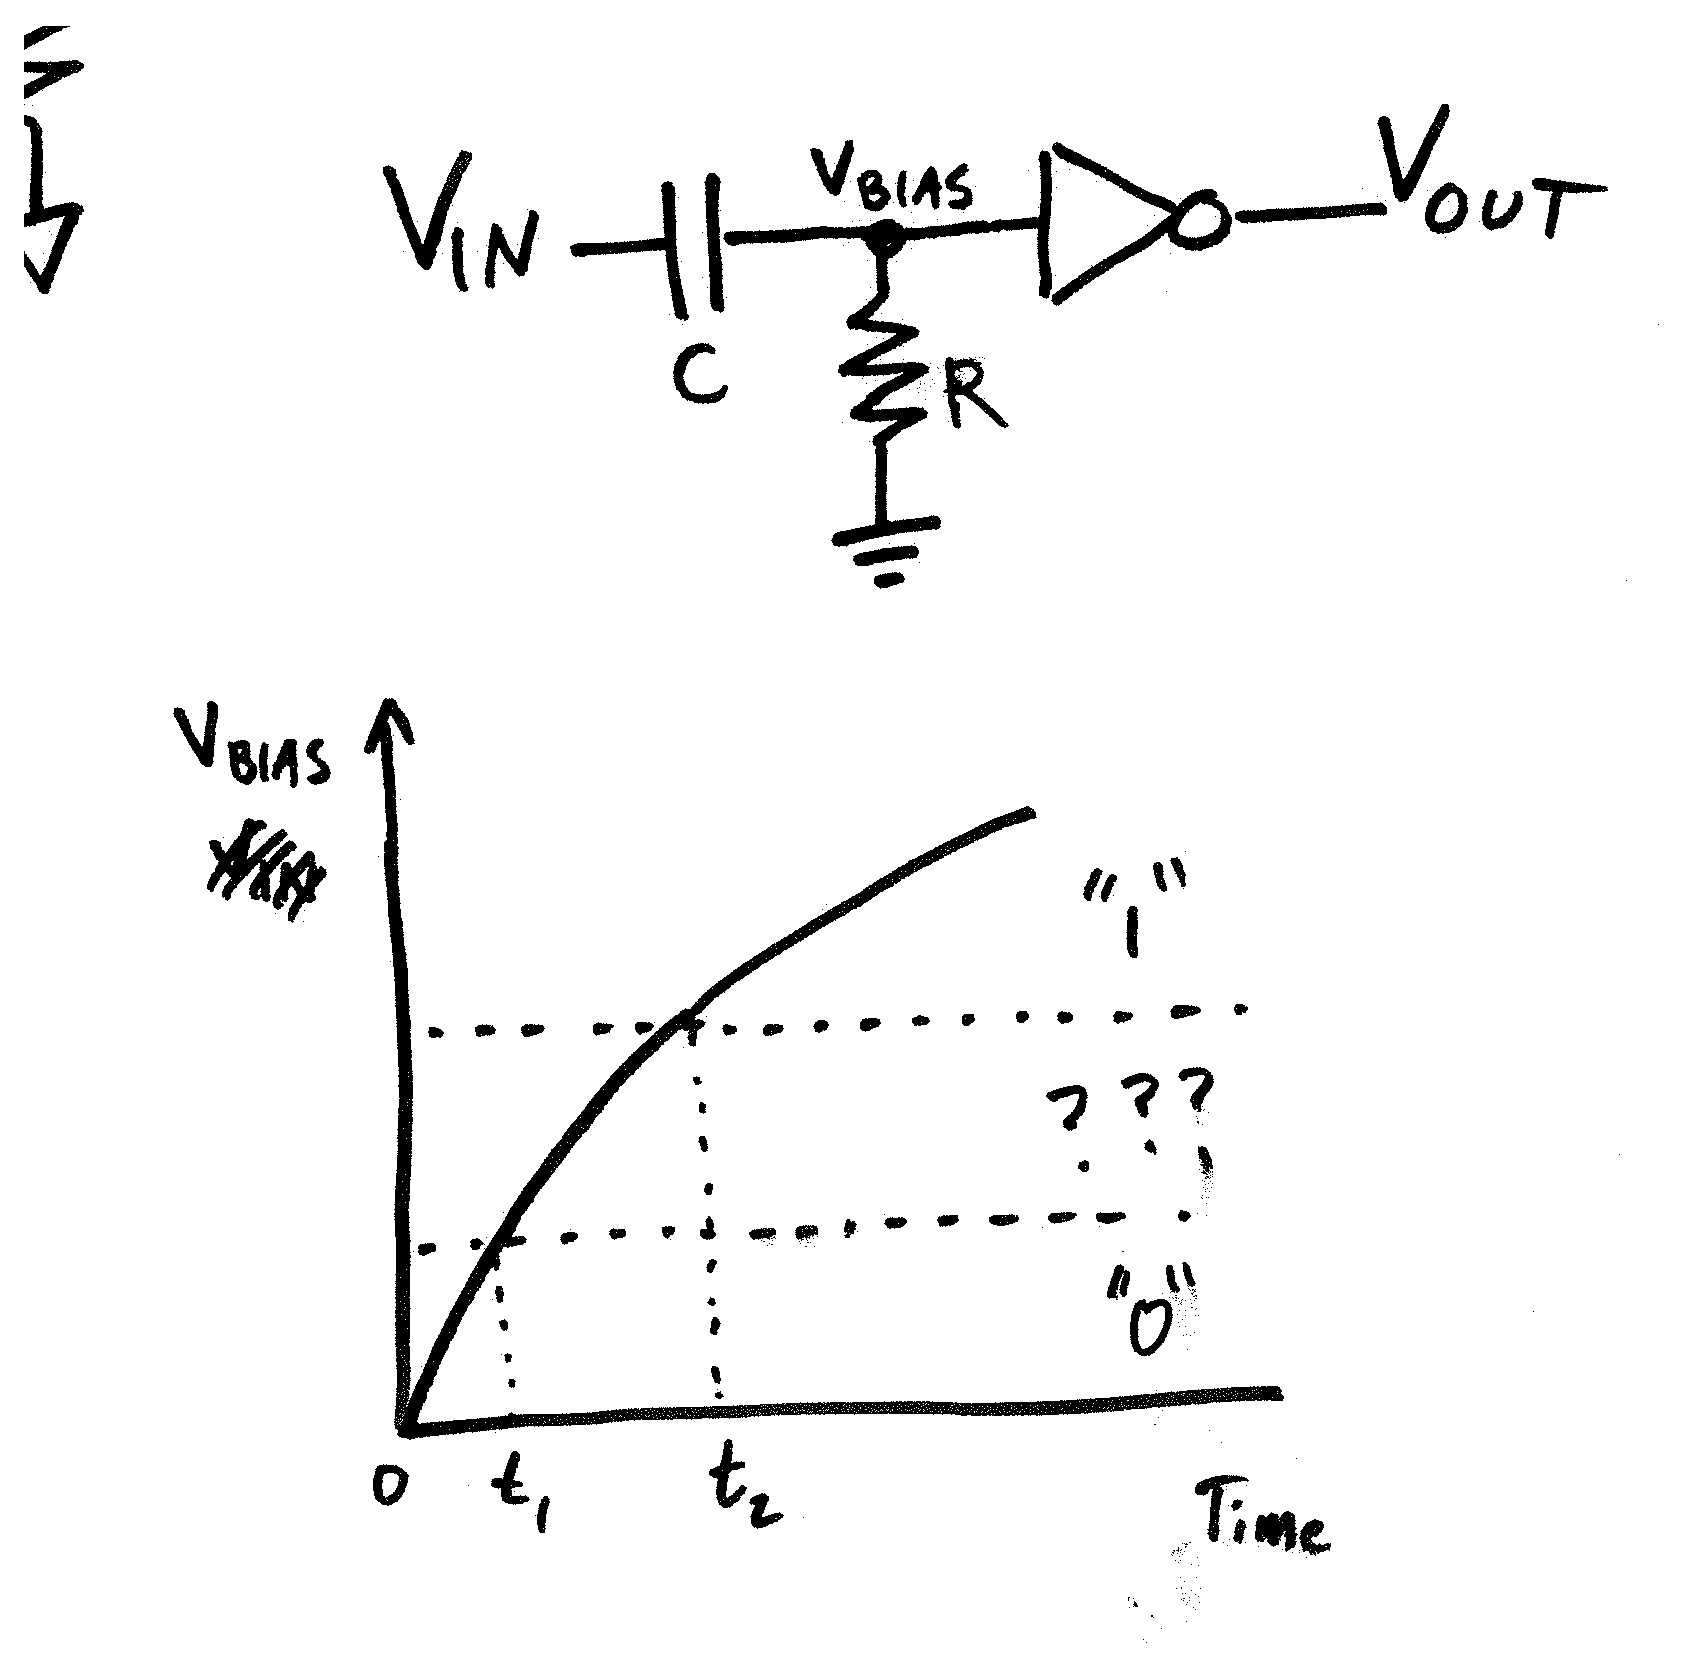 VIN
C
VBIAS
R
VOUT
VBIAS
"1"
? ? ?
"0"
0
t1
t2
Time